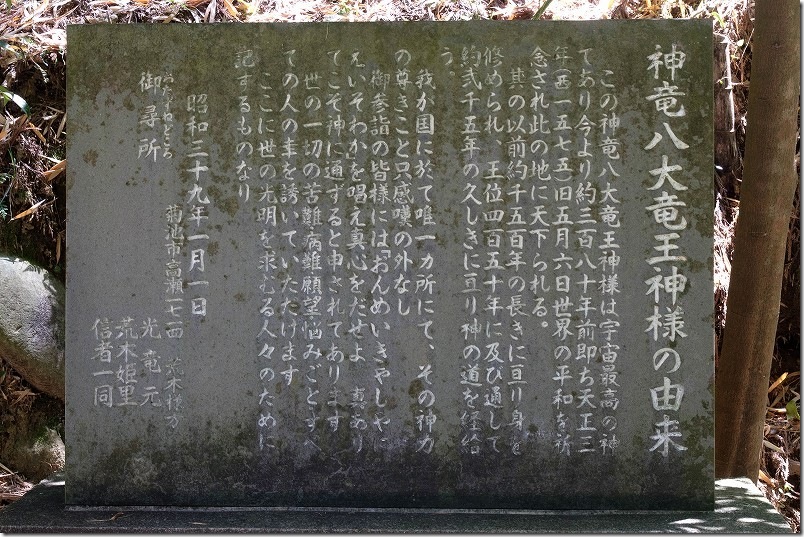 神竜八大竜王神様の由来
この神竜八大竜王神様は宇宙最高の神
であり今より約三百八十年前即ち天正三
年(西一五七五)旧五月六日世界の平和を祈
念され此の地に天下られる。
其の以前約千五百年の長きに亘り身を
修められ、王位四百五十年に及び通して
約弐千五年の久しきに亘り神の道を経給
う。
我が国に於て唯一カ所にて、その神力
の尊きこと只感嘆の外なし
御参詣の皆様には「おんめいきやしやに
えいそわか」を唱え真心をだせよ
てこそ神に通ずると申されてあります
世の一切の苦難病難願望悩みごとすべ
ての人の幸を誘いていただけます
ここに世の光明を求むる人々のために
記するものなり
昭和三十九年一月一日
おたずねどころ
御尋所
菊池市高瀬一七四 荒木 方
光竜元
荒木姫里
信者一同